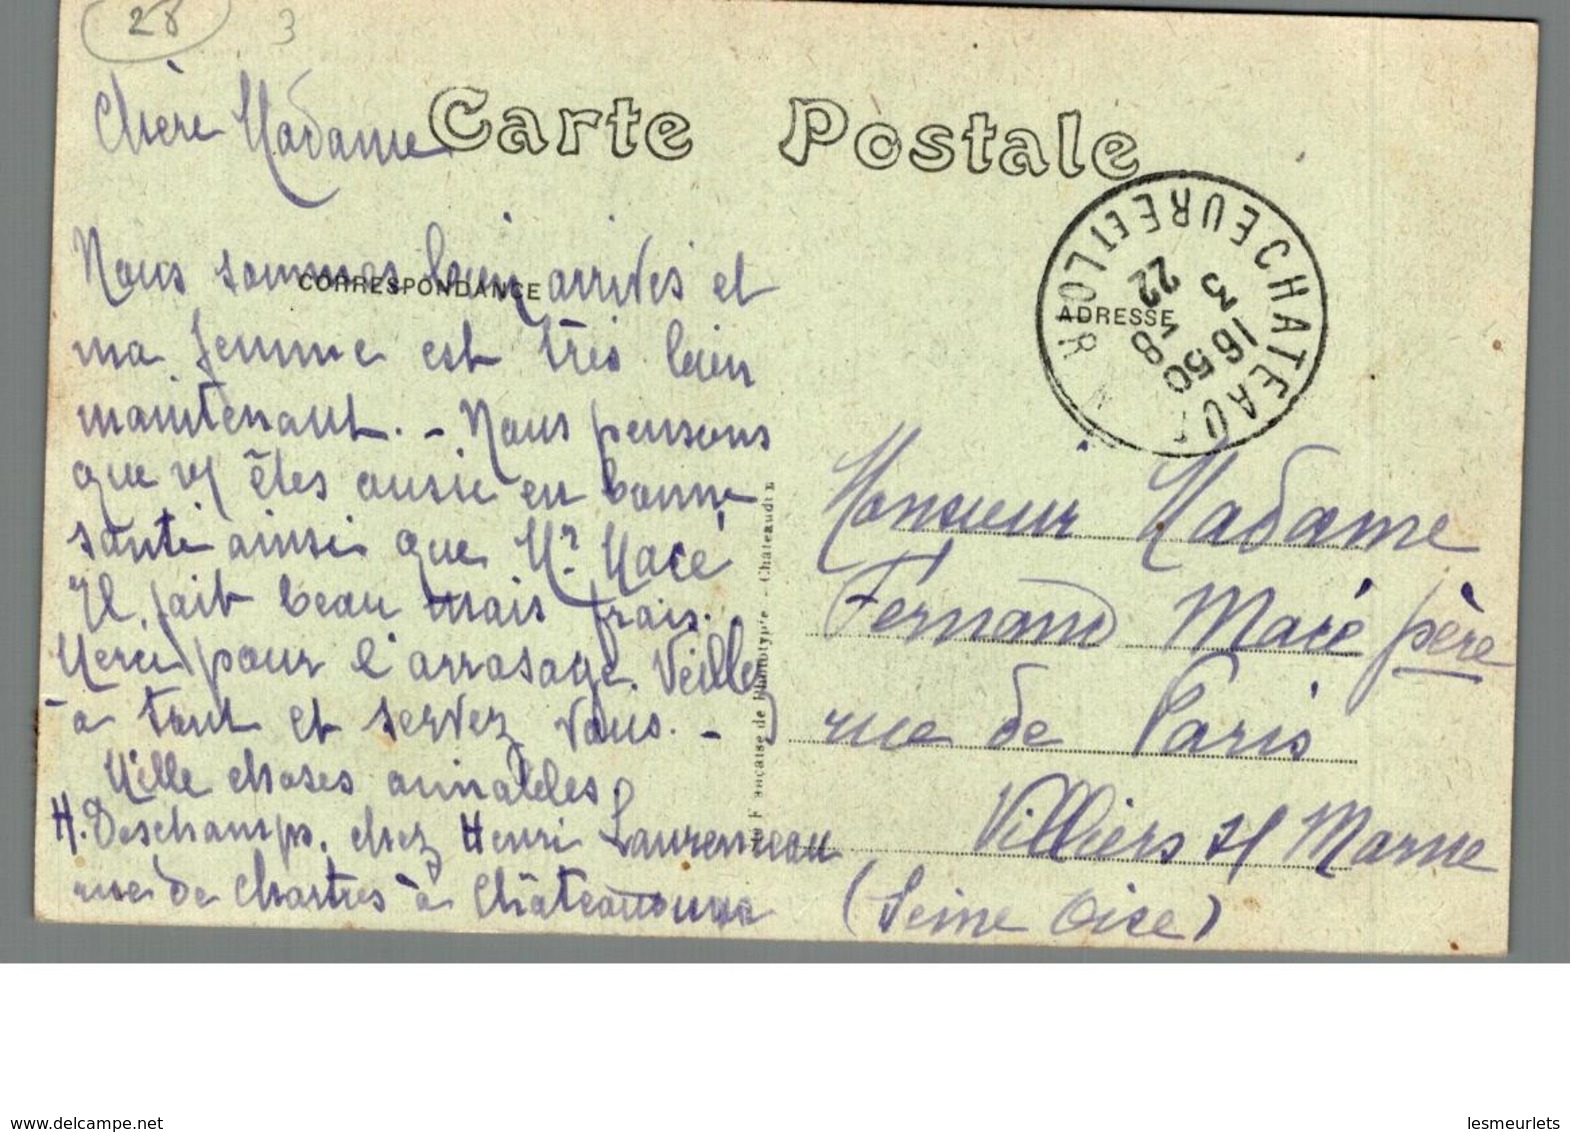 28 3
Carte Postale
Chère Madame
CORRESPONDANCE
Nous sommes bien arrivés et
ma femme est très bien
maintenant. - Nous pensons
que vs êtes aussi en bonne
santé ainsi que Mr Macé
Il fait beau mais frais.
Merci pour l'arrosage. Veillez
à tout et servez vous. -
Mille choses aimables
H. Deschamps, chez Henri Laurenceau
rue de Chartres à Châteaudun
Française de Phototypie - Châteaudun
CHATEAUDUN EURE ET LOIR
16 50
3 - 8
22
ADRESSE
Monsieur Madame
Fernand Macé père
rue de Paris
Villiers s/ Marne
(Seine Oise)
www.delcampe.net
lesmeurlets